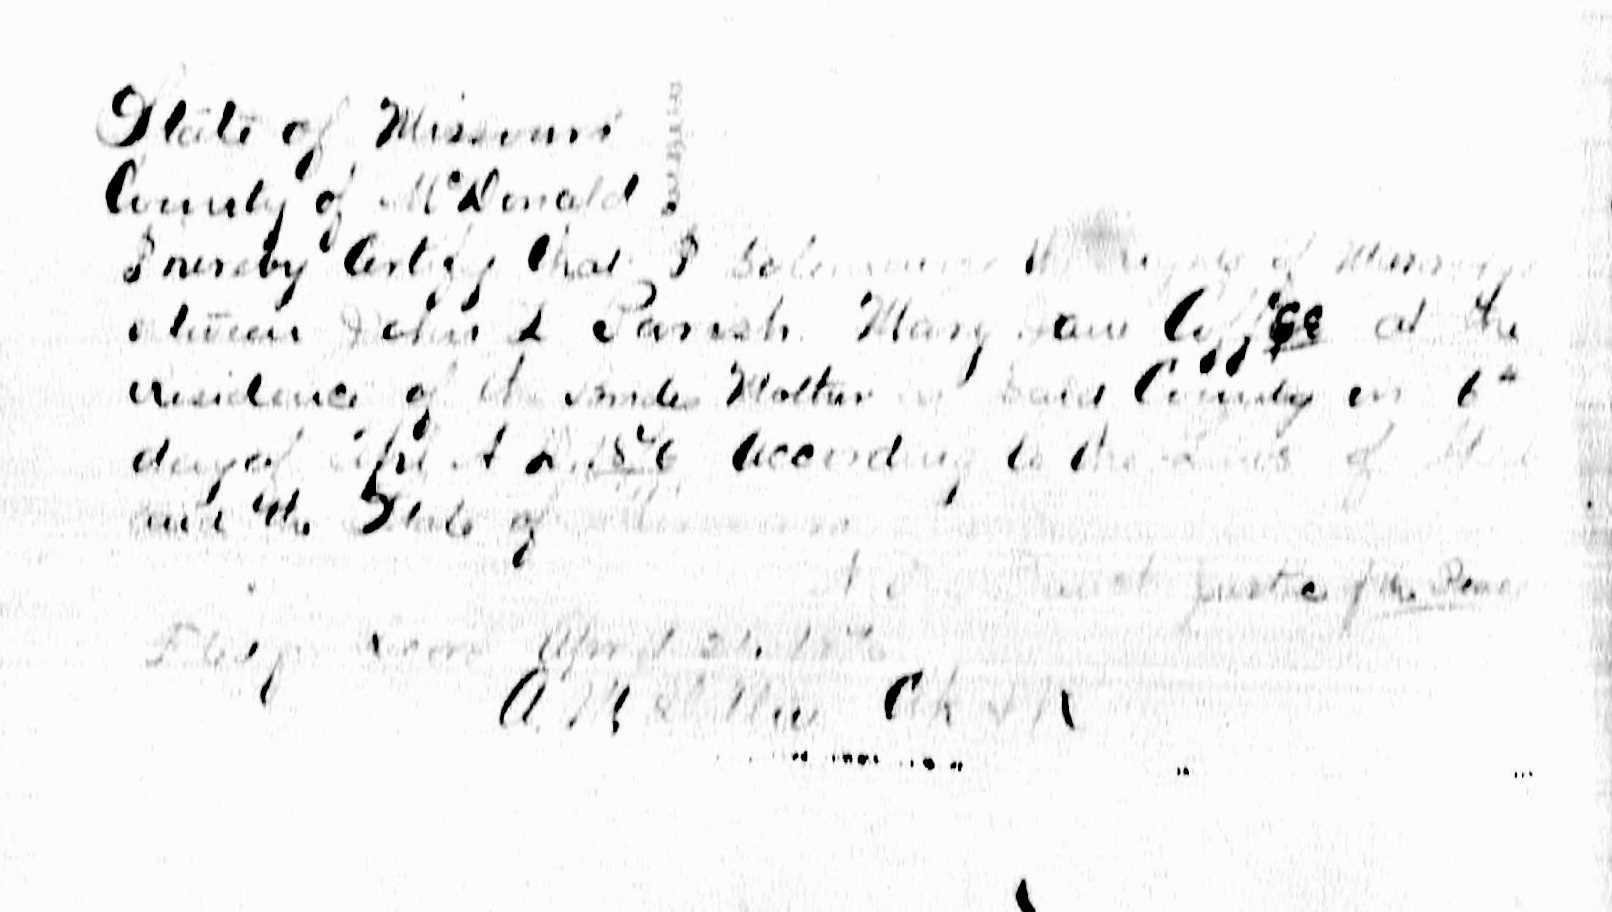 State of Missouri
County of McDonald
I hereby Certify that I Solemnized the of Marriage
between John L Parish Mary Jane Coffee at the
residence of the brides Mother in Said County on 6th
day of Apl A D. 1876 According to the Laws of
and the State of Missouri
Justice of the Peace
April 1876
A. M Clk